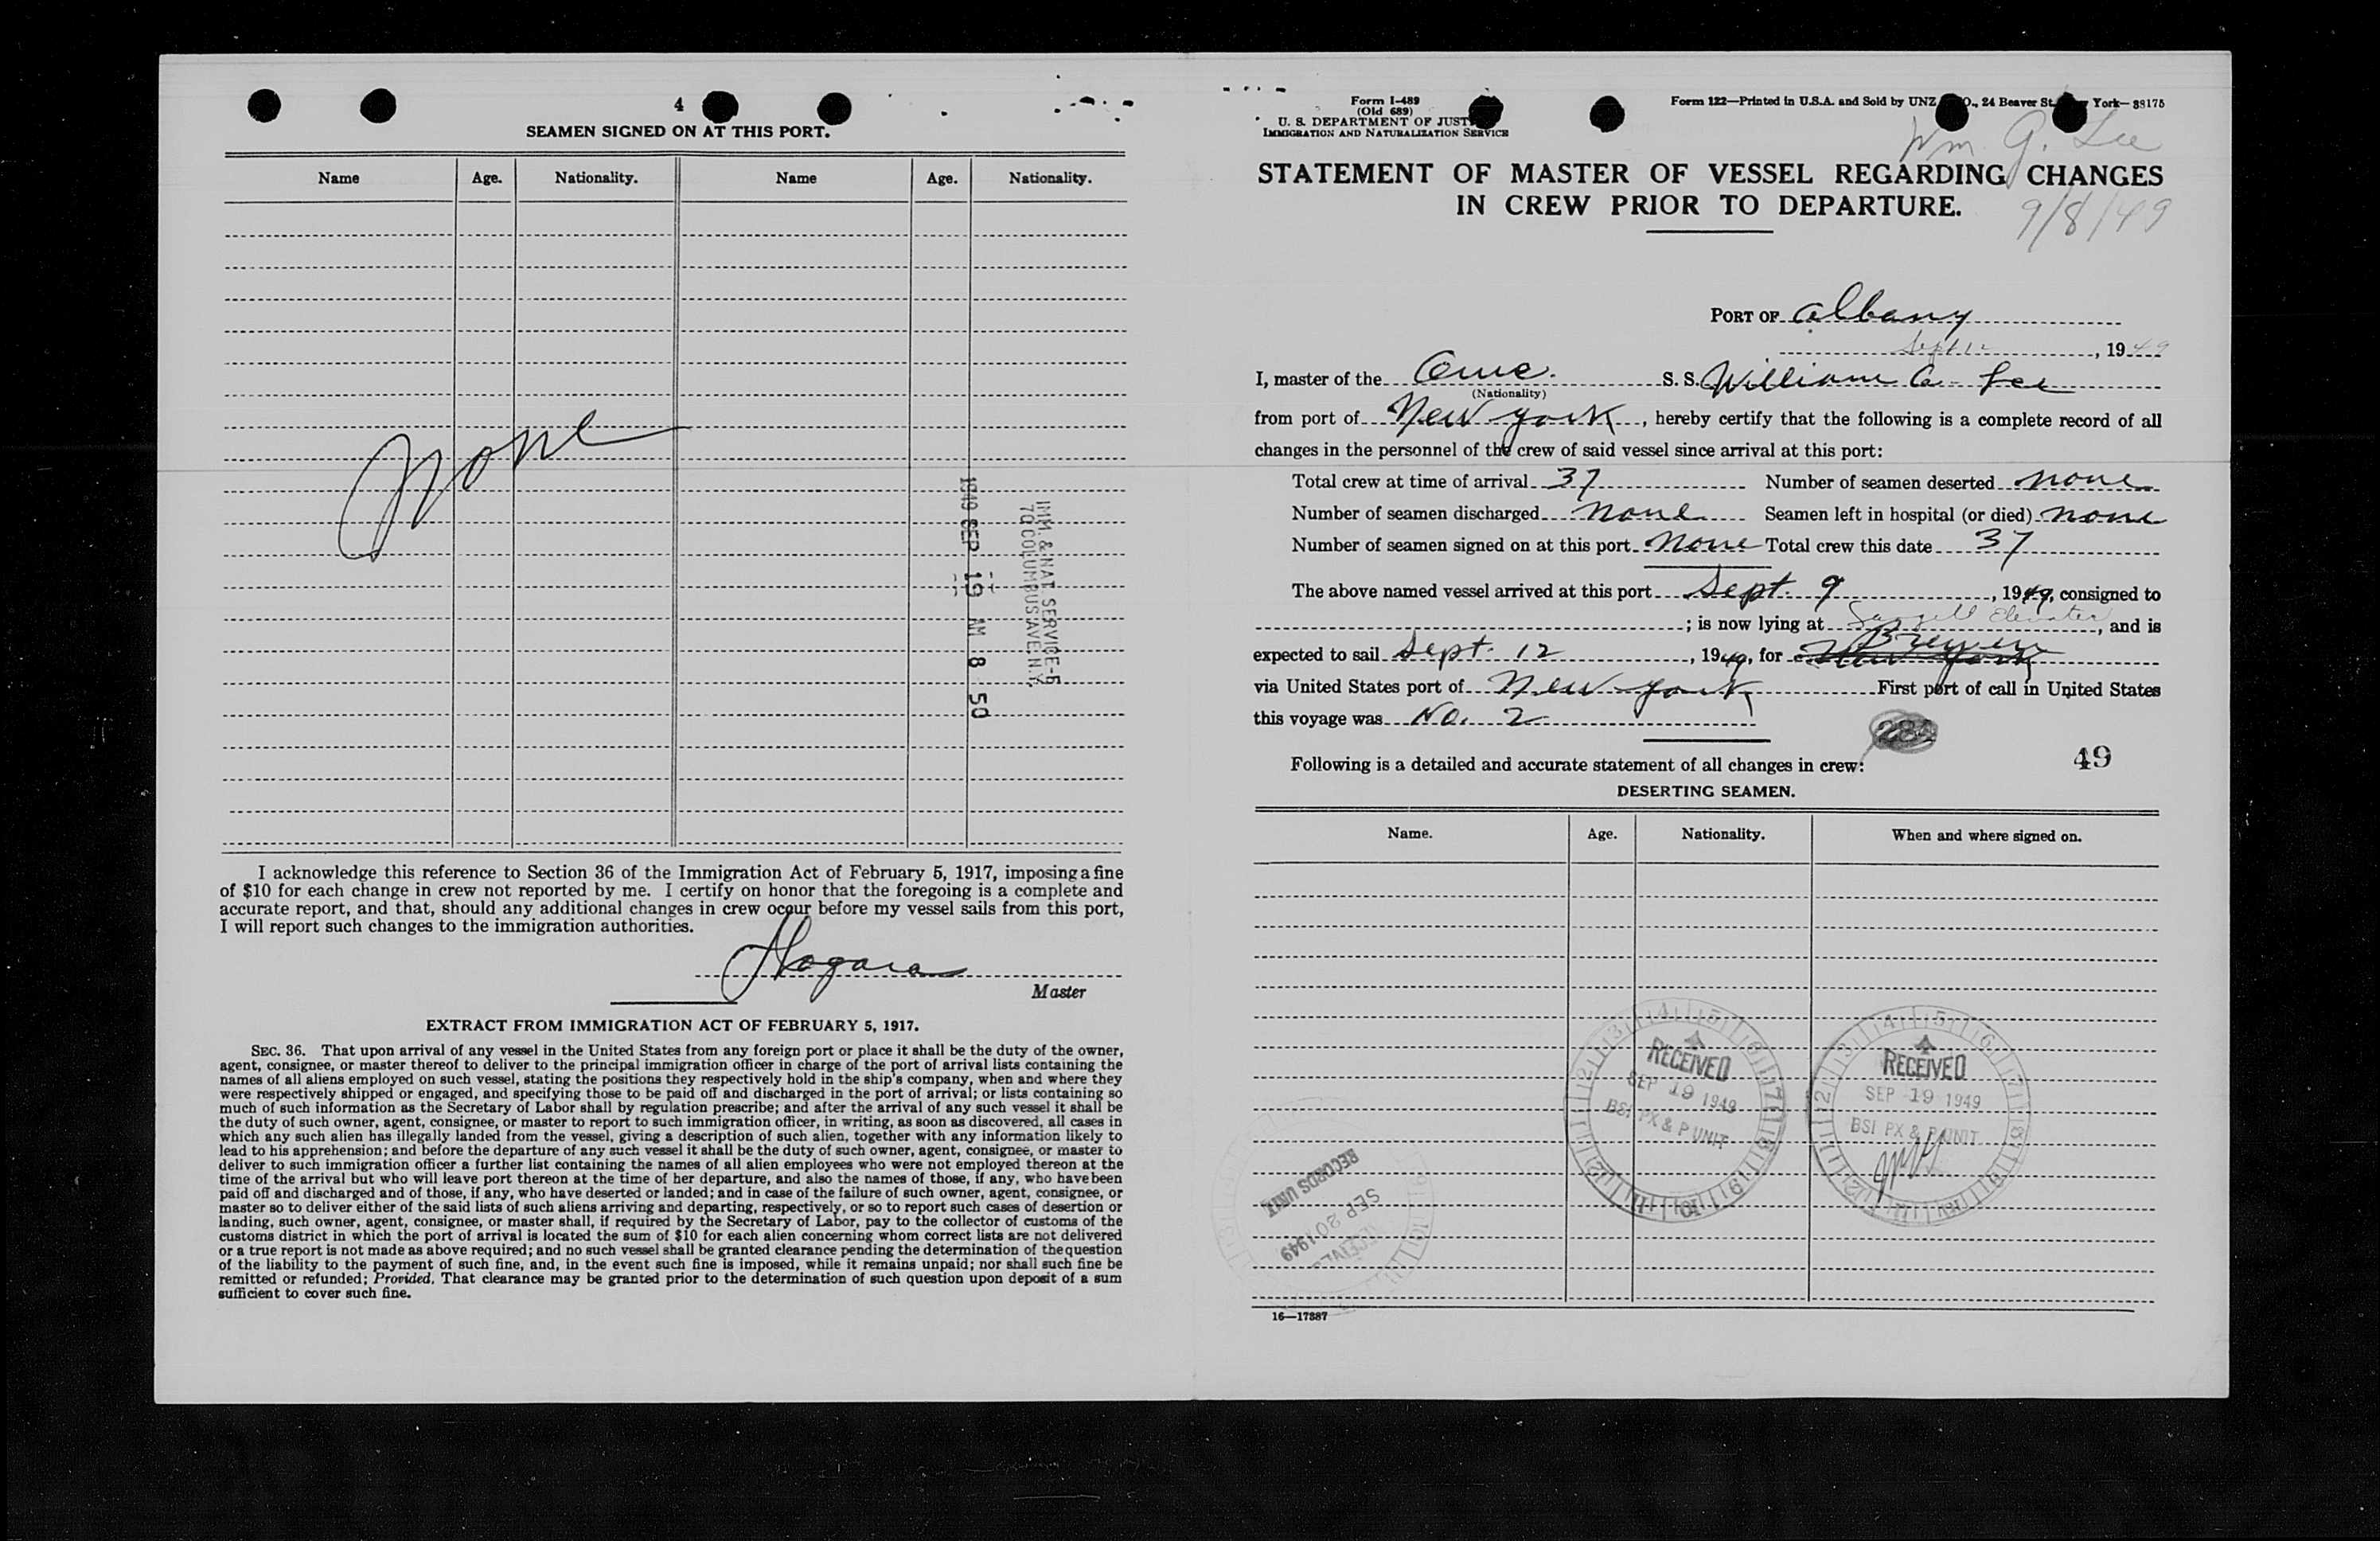 4
SEAMEN SIGNED ON AT THIS PORT.
Name Age. Nationality. Name Age. Nationality.
None
IMM. & NAT. SERVICE-5
70 COLUMBUS AVE. N.Y.
1949 SEP 19 AM 8 50
I acknowledge this reference to Section 36 of the Immigration Act of February 5, 1917, imposing a fine
of $10 for each change in crew not reported by me. I certify on honor that the foregoing is a complete and
accurate report, and that, should any additional changes in crew occur before my vessel sails from this port,
I will report such changes to the immigration authorities.
Master
EXTRACT FROM IMMIGRATION ACT OF FEBRUARY 5, 1917.
SEC. 36. That upon arrival of any vessel in the United States from any foreign port or place it shall be the duty of the owner,
agent, consignee, or master thereof to deliver to the principal immigration officer in charge of the port of arrival lists containing the
names of all aliens employed on such vessel, stating the positions they respectively hold in the ship's company, when and where they
were respectively shipped or engaged, and specifying those to be paid off and discharged in the port of arrival; or lists containing so
much of such information as the Secretary of Labor shall by regulation prescribe; and after the arrival of any such vessel it shall be
the duty of such owner, agent, consignee, or master to report to such immigration officer, in writing, as soon as discovered, all cases in
which any such alien has illegally landed from the vessel, giving a description of such alien, together with any information likely to
lead to his apprehension; and before the departure of any such vessel it shall be the duty of such owner, agent, consignee, or master to
deliver to such immigration officer a further list containing the names of all alien employees who were not employed thereon at the
time of the arrival but who will leave port thereon at the time of her departure, and also the names of those, if any, who have been
paid off and discharged and of those, if any, who have deserted or landed; and in case of the failure of such owner, agent, consignee, or
master so to deliver either of the said lists of such aliens arriving and departing, respectively, or so to report such cases of desertion or
landing, such owner, agent, consignee, or master shall, if required by the Secretary of Labor, pay to the collector of customs of the
customs district in which the port of arrival is located the sum of $10 for each alien concerning whom correct lists are not delivered
or a true report is not made as above required; and no such vessel shall be granted clearance pending the determination of the question
of the liability to the payment of such fine, and, in the event such fine is imposed, while it remains unpaid; nor shall such fine be
remitted or refunded; Provided, That clearance may be granted prior to the determination of such question upon deposit of a sum
sufficient to cover such fine.
Form I-489
(Old 689)
U. S. DEPARTMENT OF JUST
IMMIGRATION AND NATURALIZATION SERVICE
Form 122—Printed in U.S.A. and Sold by UNZ O., 24 Beaver St. York—38175
Wm G. Lee
STATEMENT OF MASTER OF VESSEL REGARDING CHANGES
IN CREW PRIOR TO DEPARTURE.
9/8/49
PORT OF Albany
Sept 12, 1949
I, master of the Ame. S. S. William G. Lee
(Nationality)
from port of New York, hereby certify that the following is a complete record of all
changes in the personnel of the crew of said vessel since arrival at this port:
Total crew at time of arrival 37 Number of seamen deserted none
Number of seamen discharged None Seamen left in hospital (or died) none
Number of seamen signed on at this port None Total crew this date 37
The above named vessel arrived at this port Sept. 9, 1949, consigned to
; is now lying at Elevator, and is
expected to sail Sept. 12, 1949, for New York Bremen
via United States port of New York First port of call in United States
this voyage was No. 2
284
49
Following is a detailed and accurate statement of all changes in crew:
DESERTING SEAMEN.
Name. Age. Nationality. When and where signed on.
RECEIVED
SEP 19 1949
BSI PX & P UNIT
RECEIVED
SEP 19 1949
BSI PX & P UNIT
RECORDS UNIT
SEP 20 1949
RECEIVED
16—17887